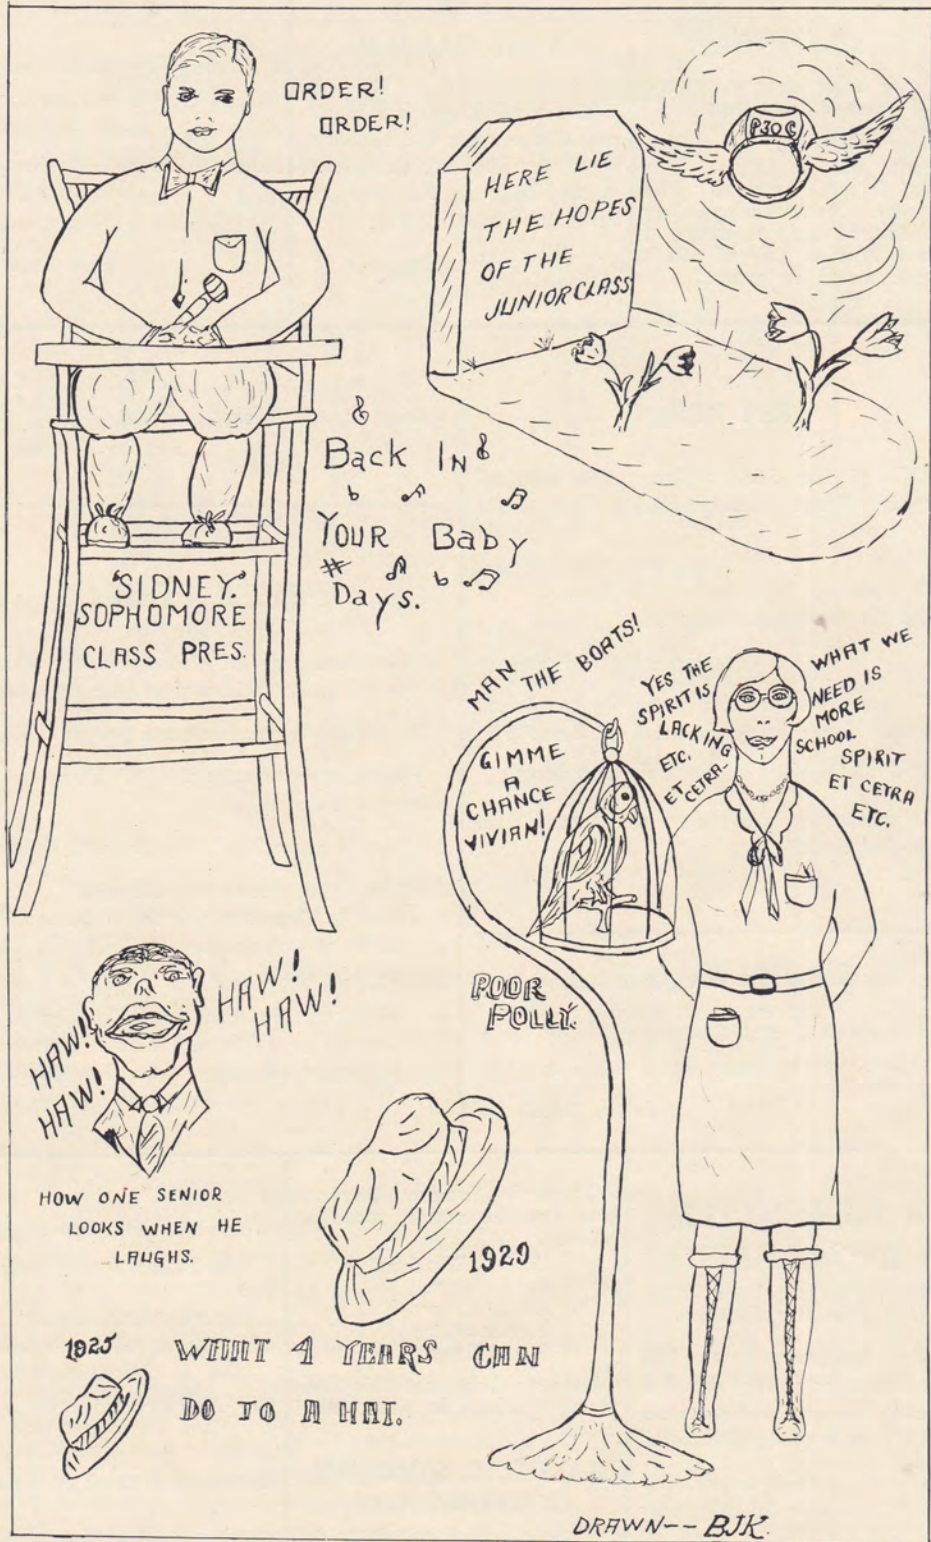 ORDER!
ORDER!
HERE LIE
THE HOPES
OF THE
JUNIOR CLASS
P30C
Back In
Your Baby
Days.
"SIDNEY."
SOPHOMORE
CLASS PRES.
MAN THE BOATS!
GIMME
A
CHANCE
VIVIAN!
YES THE
SPIRIT IS
LACKING
ETC.
ET CETRA-
WHAT WE
NEED IS
MORE
SCHOOL
SPIRIT
ET CETRA
ETC.
POOR
POLLY.
HAW!
HAW!
HAW!
HAW!
HOW ONE SENIOR
LOOKS WHEN HE
LAUGHS.
1929
1925
WHAT 4 YEARS CAN
DO TO A HAT.
DRAWN-- BJK.